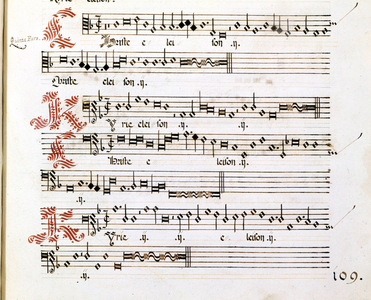 Kyrie eleison.
Quinta Pars.
Christe e lei son .ij.
Christe elei son .ij.
Kyrie elei son .ij. .ij.
Christe e leison .ij.
.ij.
Kyrie .ij. .ij. e leison .ij.
.ij.
109.